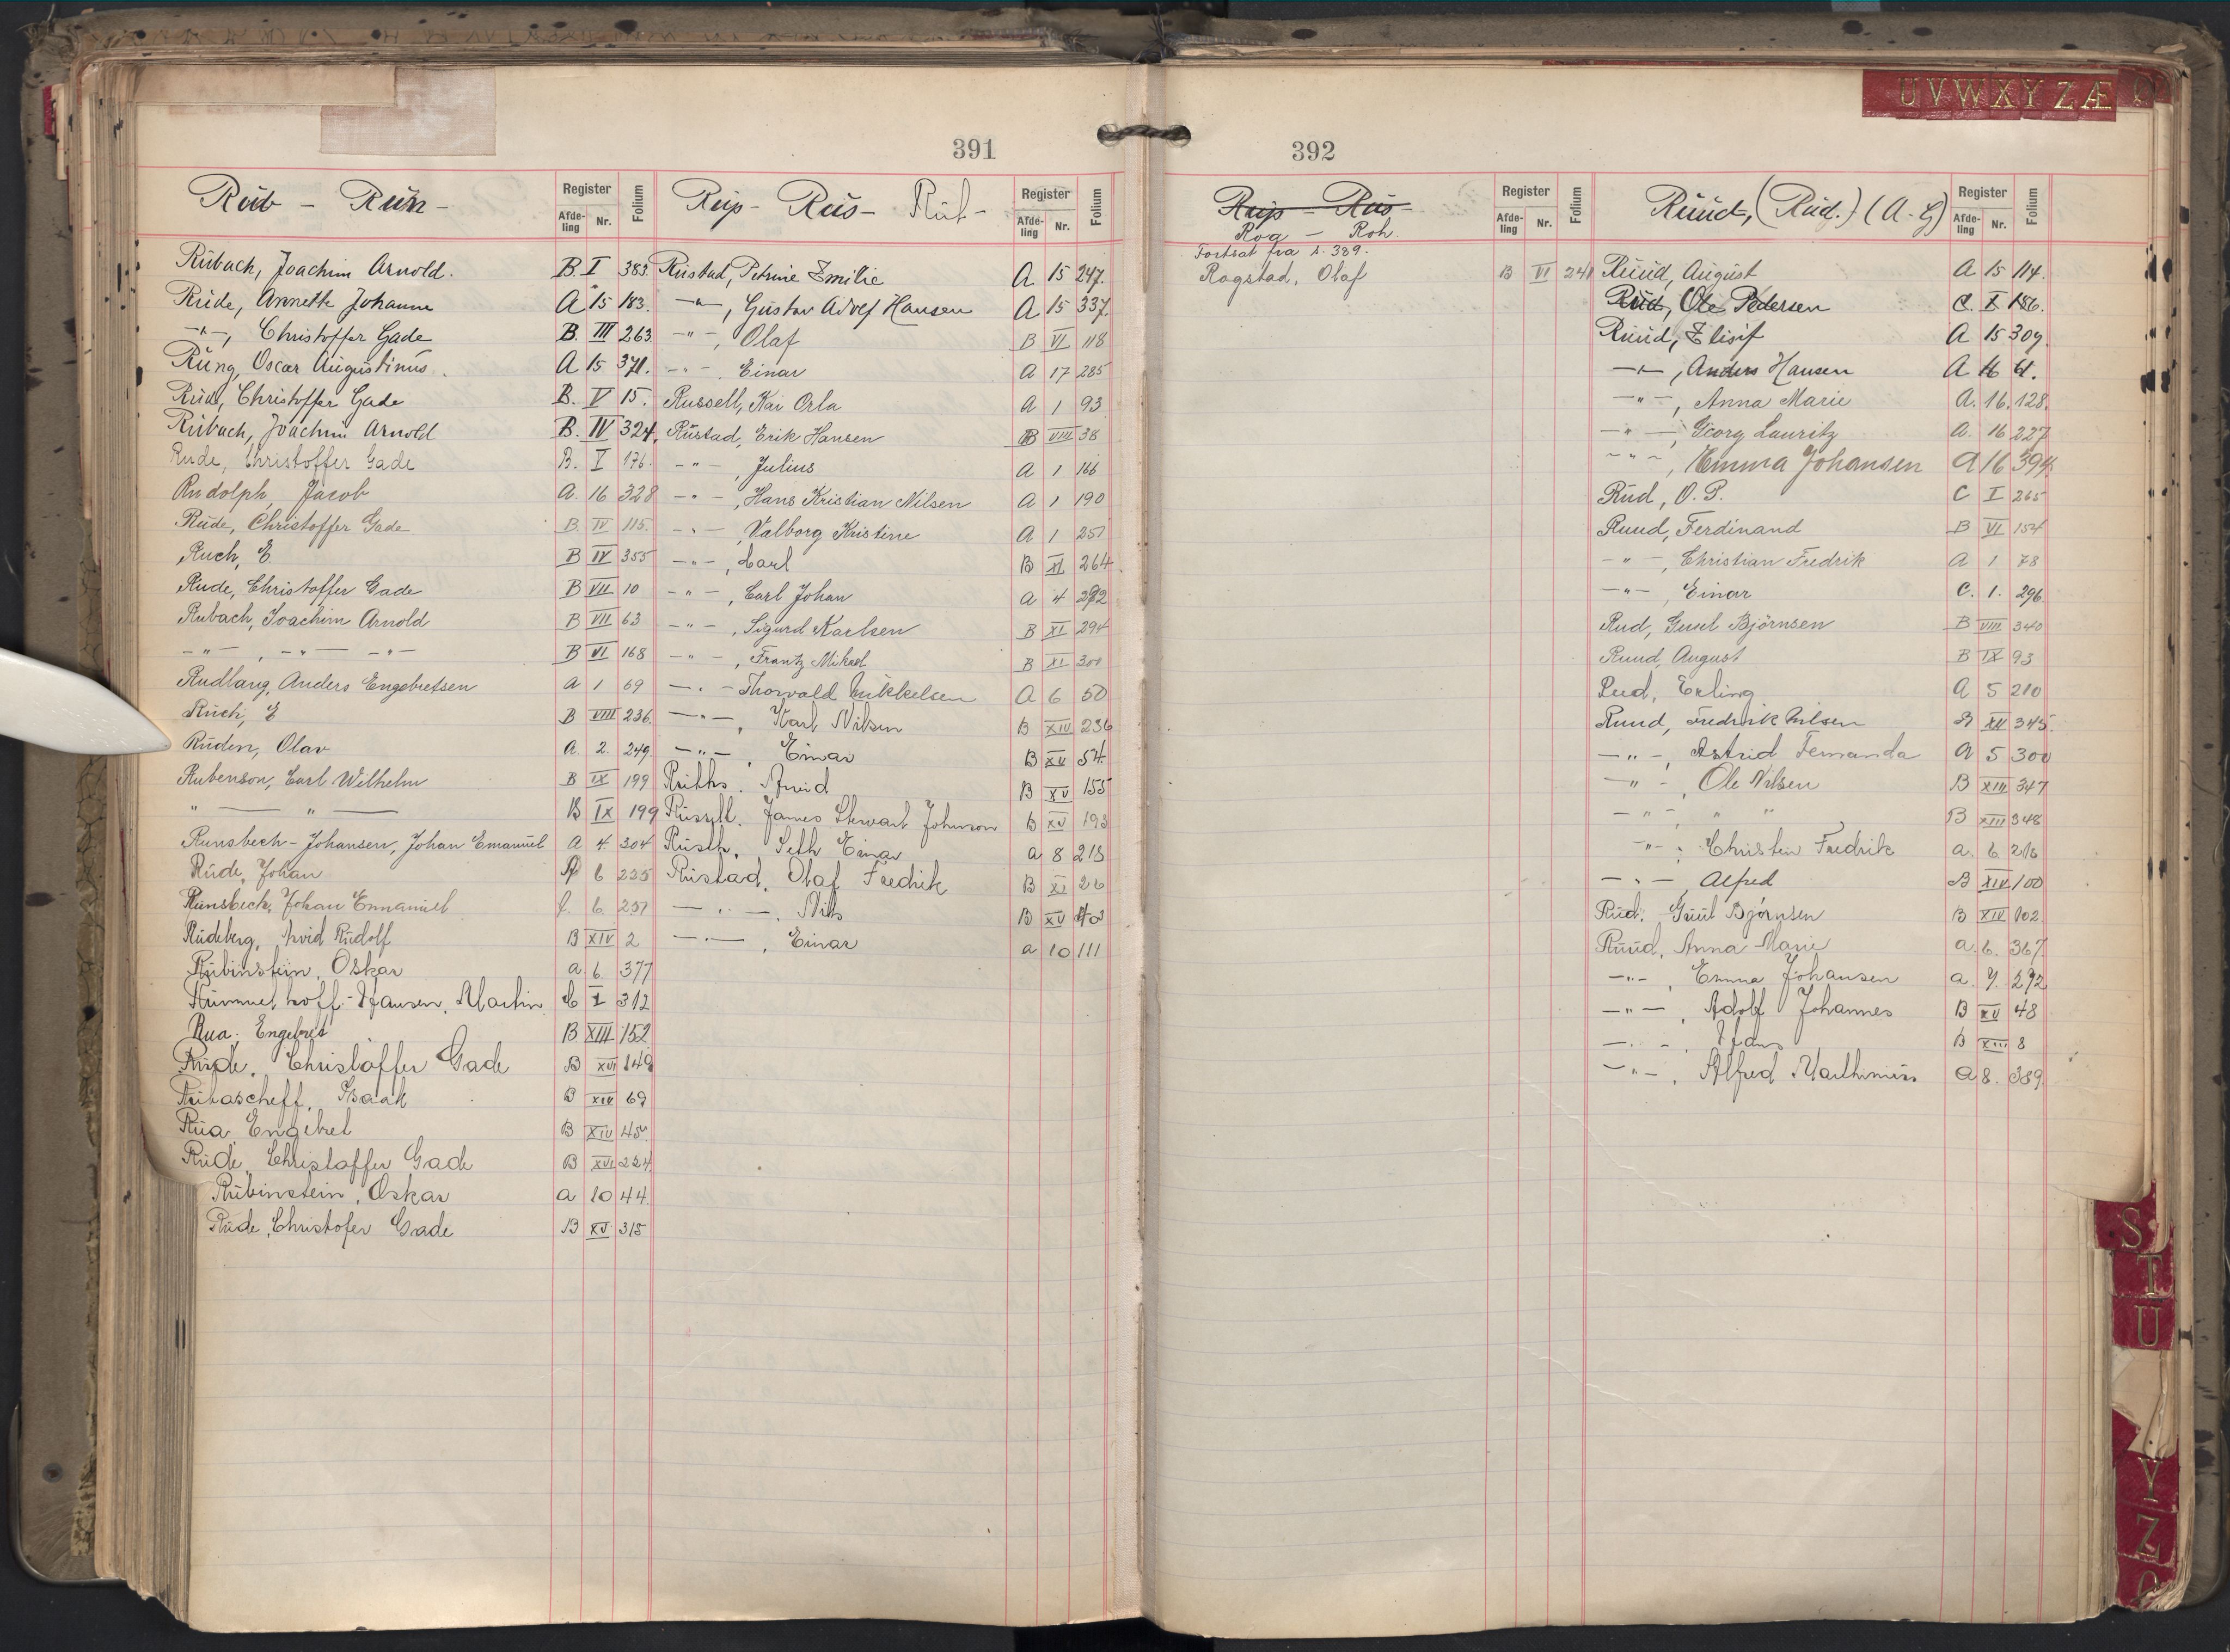 391
Rüb - Rün -
Register
Afdeling
Nr.
Folium
Rübach, Joachim Arnold. B. I 383.
Rüde, Annette Johanne A 15 183.
-"-, Christoffer Gade B. III 263
Rüng, Oscar Augustinus. A 15 371.
Rüde, Christoffer Gade B. V 15.
Rübach, Joachim Arnold B. IV 324.
Rude, Christoffer Gade B. V 176.
Rudolph, Jacob A. 16 328
Rüde, Christoffer Gade B. IV 115.
Ruch, E. B IV 355
Rude, Christoffer Gade B VII 10
Rubach, Joachim Arnold B VII 63
-"-, -"- -"- B VI 168
Rudlang, Anders Engebretsen A 1 69
Ruch, E B VIII 236.
Rüden, Olav A. 2. 249.
Rubenson, Carl Wilhelm B IX 199
" — " — B IX 199
Runsbech-Johansen, Johan Emanuel A 4. 304
Rüde, Johan 6 225
Runsbech, Johan Emanuel 6. 251
Rüdeberg, Arvid Rüdolf B XIV 2
Rübinstein, Oskar a. 6. 377
Rümmelhoff-Hansen, Martin C I 312
Rua, Engebret B XIII 152
Rüde, Christoffer Gade B XVI 149
Rubascheff, Isaak B XIV 69
Rüa Engebret B XIV 45
Rüde, Christoffer Gade B XVI 224
Rübinstein, Oskar a 10 44.
Rüde, Christofer Gade B XV 315
Rup - Rüs - Rüt -
Register
Afdeling
Nr.
Folium
Rüstad, Petrine Emilie A 15 247.
-"-, Gustav Adolf Hansen A 15 337.
-"-, Olaf B VI 118
-"-, Einar A 17 285
Russell, Kai Orla A 1 93
Rüstad, Erik Hansen B VIII 38
-"-, Julius A 1 166
-"-, Hans Kristian Nilsen A 1 190
-"-, Valborg Kristine A 1 251
-"-, Carl B XI 264
-"-, Carl Johan A 4 292
-"-, Sigurd Karlsen B XI 294
-"-, Frantz Mikael B XI 300
-"- Thorvald Mikkelsen A 6 50
-"-, Karl Nilsen B XIV 236
-"-, Einar B XV 54
Arvid B XV 155
Russell, James Stewart Johnson B XV 193
Rüsth, Seth Einar a 8 218
Rüstad, Olaf Fredrik B XI 26
-"-, Nils B XV 403
-"-, Einar a 10 111
392
Rup - Rüs -
Rog - Roh.
Register
Afdeling
Nr.
Folium
Fortsat fra s. 389.
Rogstad, Olaf B VI 241
Rüüd, (Rüd.) (A-G)
Register
Afdeling
Nr.
Folium
Rüüd, August A 15 114.
Rüd, Ole Pedersen C. I 186.
Rüüd, Elisif A 15 309.
-"-, Anders Hansen A 16 61.
-"-, Anna Marie A. 16. 128.
-"-, Georg Lauritz A. 16 227
-"-, Emma Johansen A 16 394.
Rüd, O. P. C I 265
Ruud, Ferdinand B VI 154
-"-, Christian Fredrik A 1 78
-"-, Einar C. 1. 296.
Rud, Guul Björnsen B VIII 340
Ruud, August B IX 93
Rud, Erling A 5 210
Ruud, Fredrik Nilsen B XII 345.
-"-, Astrid Fernanda A 5 300
-"-, Ole Nilsen B XIII 347
-"-, " " B XIII 348
-"-, Christian Fredrik a. 6. 216
-"-, Alfred B XIV 100
Rüd, Guul Björnsen B XIV 102
Rüüd, Anna Marie a. 6. 367.
-"-, Emma Johansen a. 7. 272
-"-, Adolf Johannes B XV 48
-"-, Hans B XIII 8
-"-, Alfred Marthinius a 8. 389.
U V W X Y Z Æ
S
T
U
Y
Z